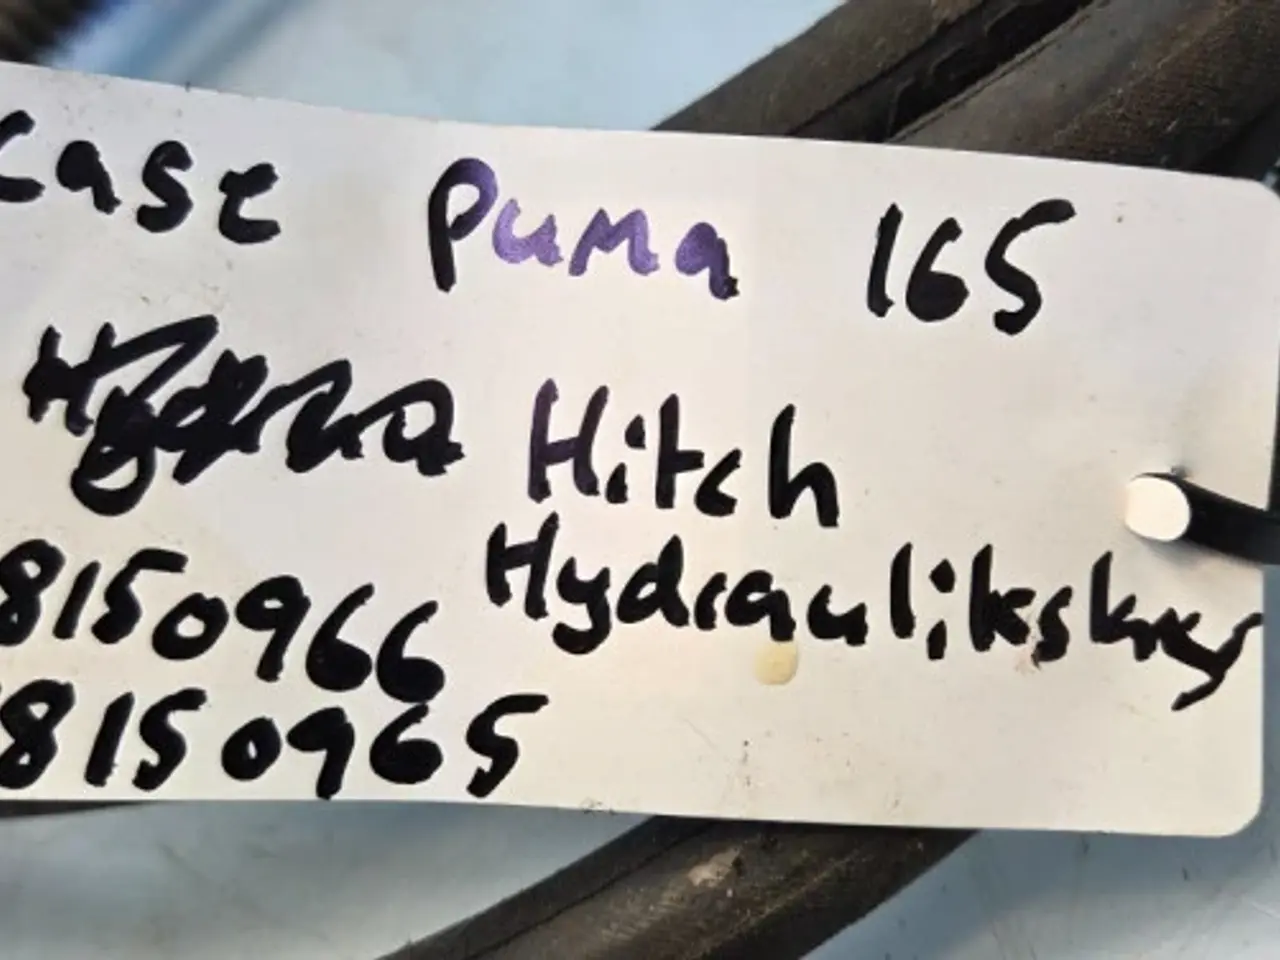 Case Puma 165
Hitch
Hydraulik
8150966
8150965